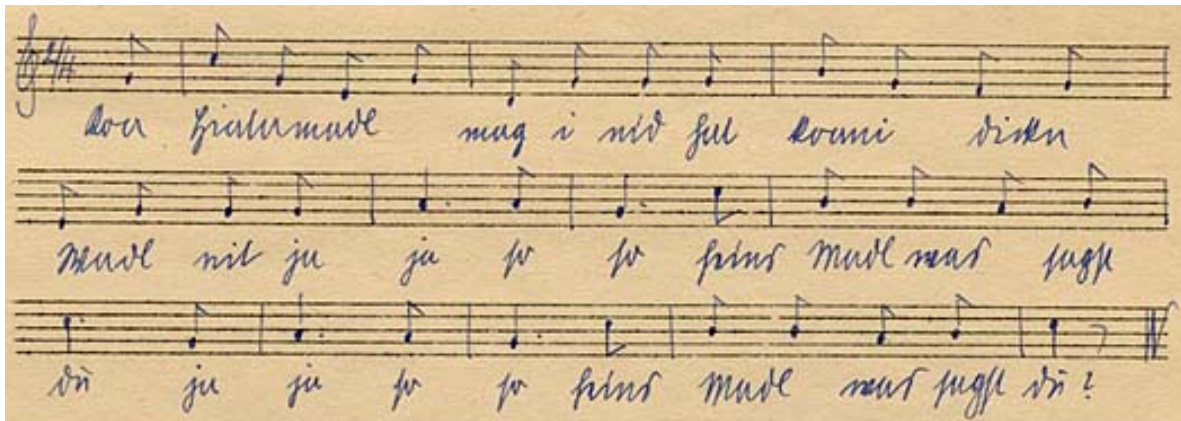 2/4
Koa Hiatamadl mag i nid hat koani dickn
Wadl nit ja ja so so feins Madl was sagst
du ja ja so so feins Madl was sagst du?